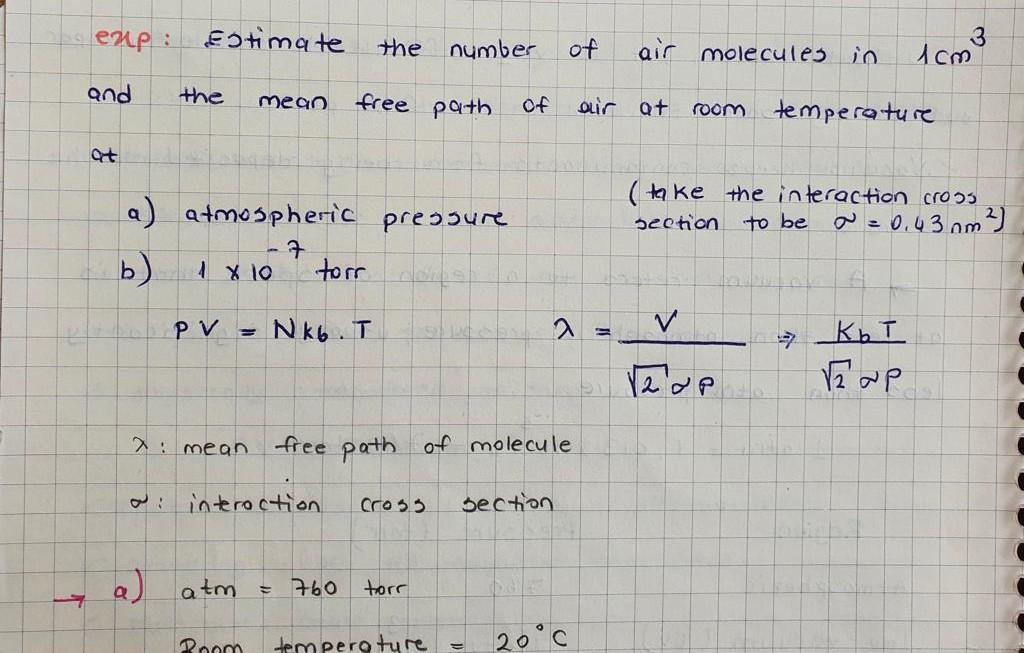 exp: Estimate the number of air molecules in 1cm³
and the mean free path of air at room temperature
at
a) atmospheric pressure (take the interaction cross
b) 1 x 10⁻⁷ torr section to be σ = 0.43 nm²)
PV = Nkb.T λ = V / √2 σ P ⇒ KbT / √2 σ P
λ: mean free path of molecule
σ: interaction cross section
→ a) atm = 760 torr
Room temperature = 20°C